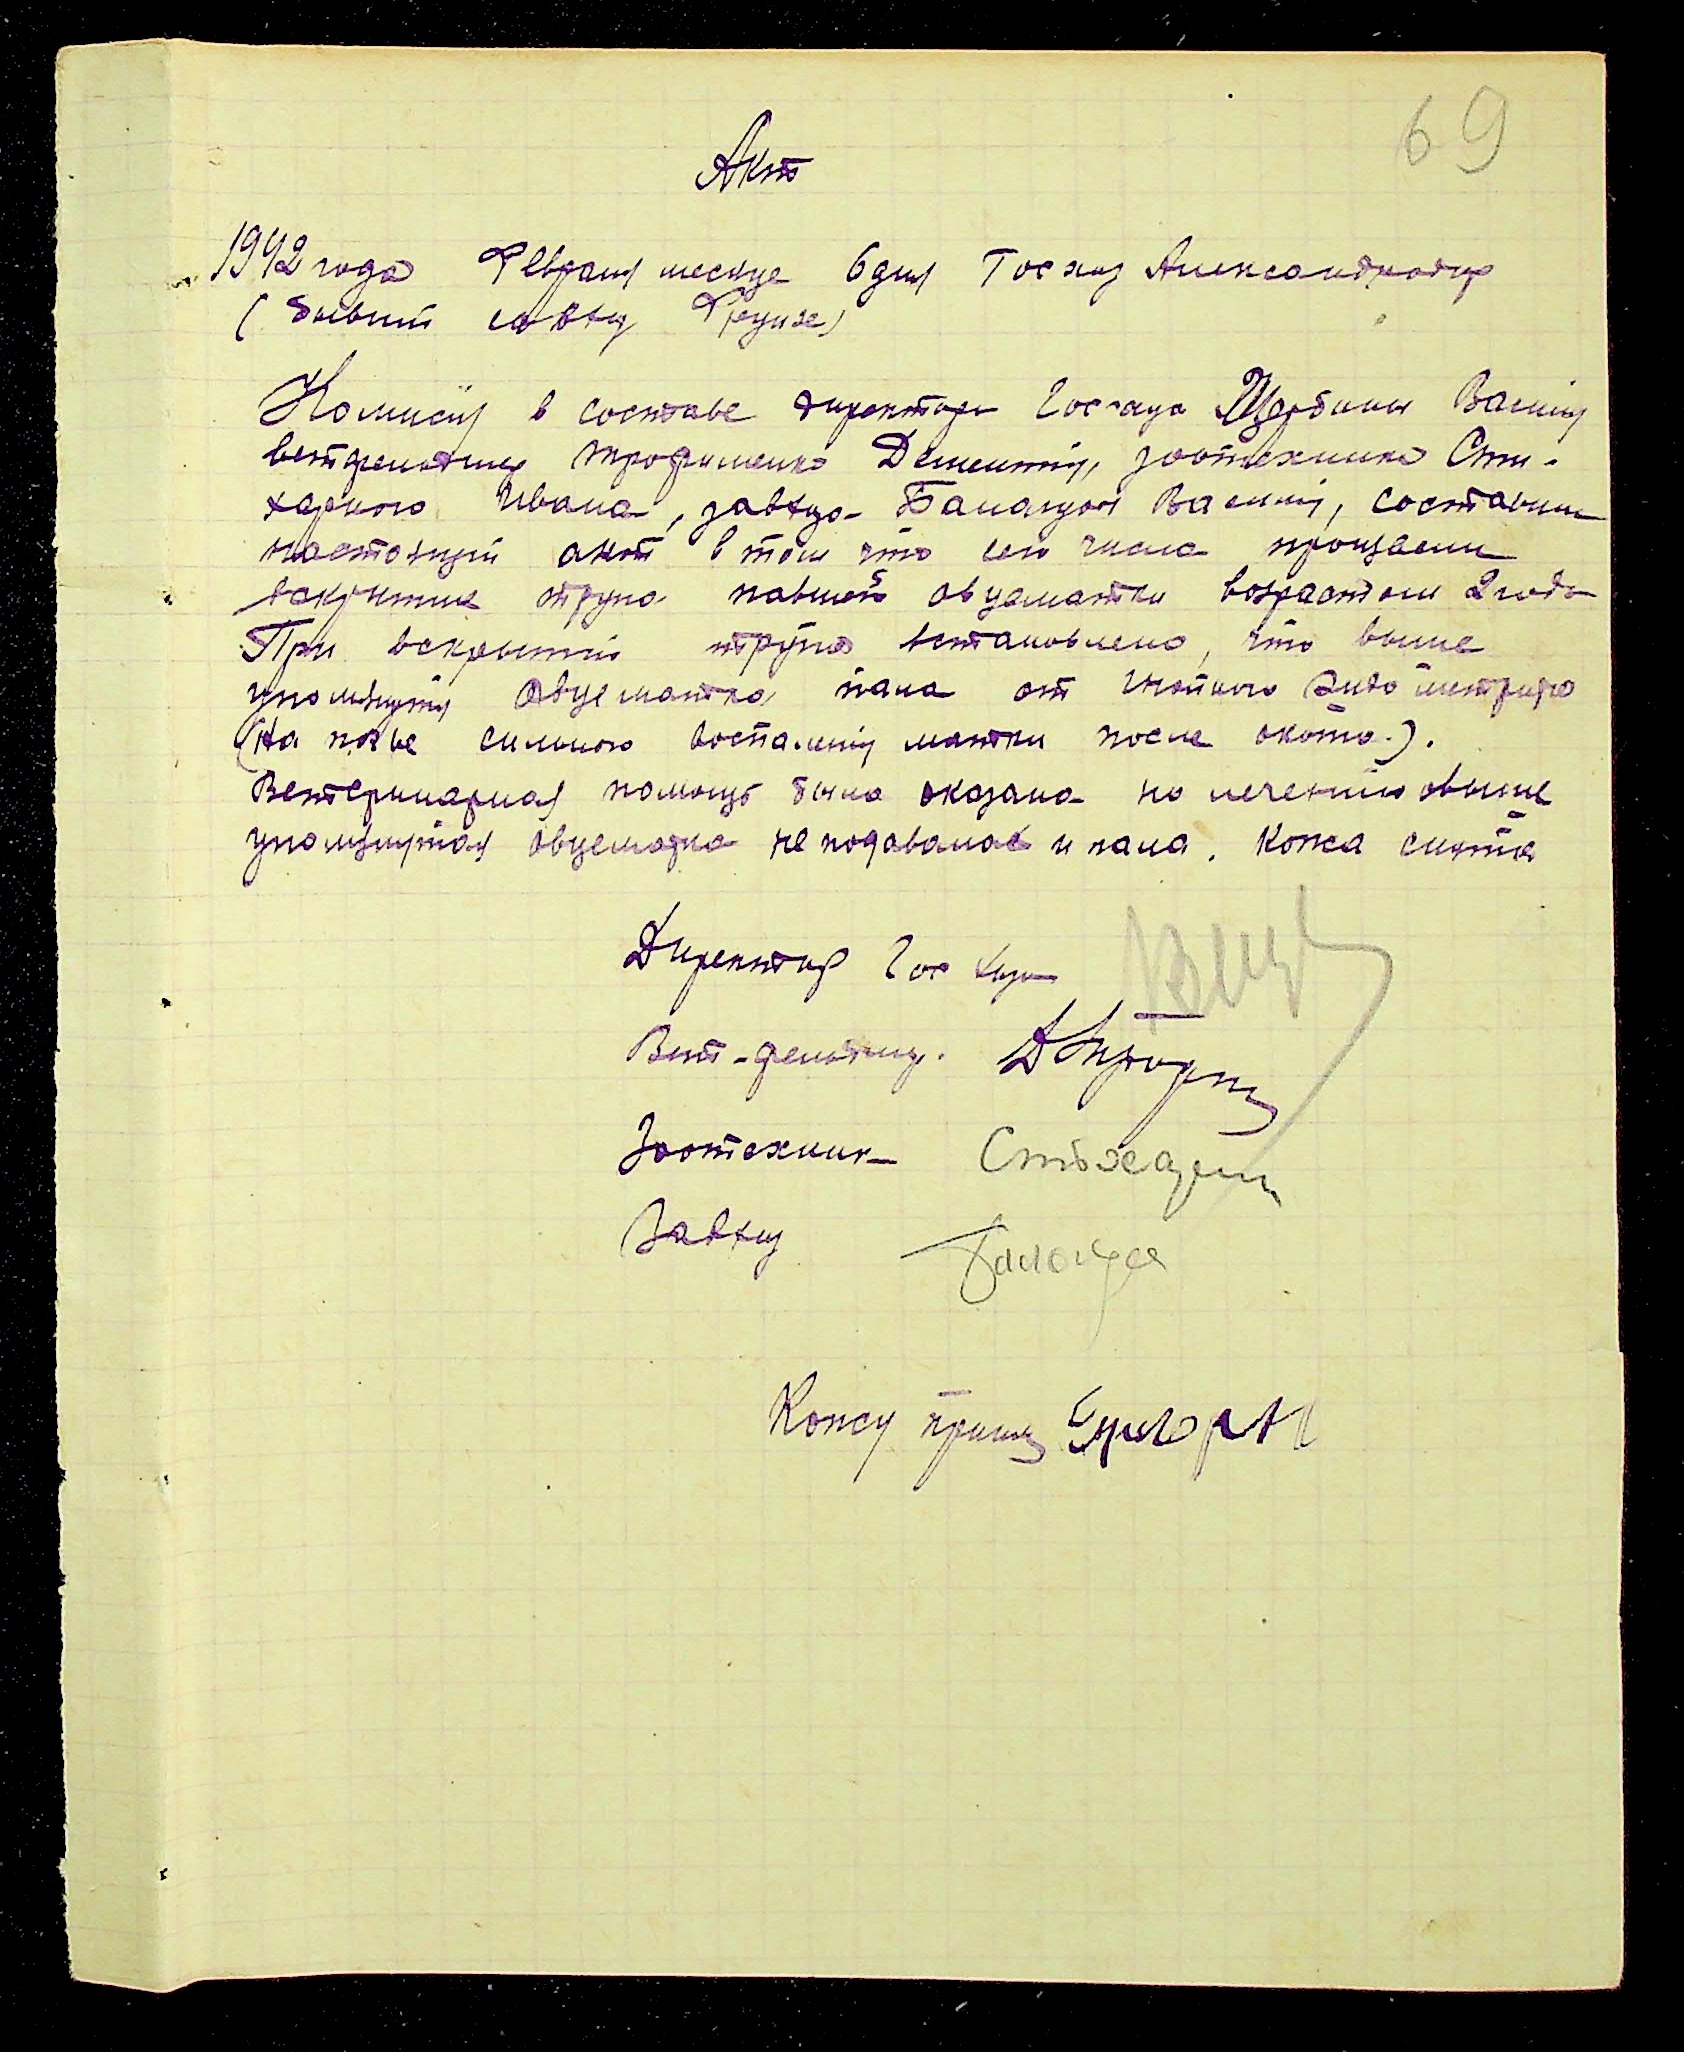 69
Акт
1942 года Февраля месяце 6 дня Госхоз Александродар
(бывший совхоз Фрунзе)
Комисия в составе директора Госхоза Щербины Василия
ветфельдшера Трофименко Дементия, зоотехника Сти-
харного Ивана, завхоза Баланды Василия, составили
настоящий акт в том что сего числа произвели
вскрытие трупа павшей овцематки возрастом 2 года
При вскрытии трупа встановлено, что выше
упомянутая овцематка пала от гнойного эндометрита
(На почве сильного воспаления матки после окота).
Ветеринарная помощь была оказана но лечению овыше
упомянутая овцематка не подавалась и пала. Кожа снята
Директор Госхоза
Вет-фельдшер.
Зоотехник
Завхоз
Кожу принял